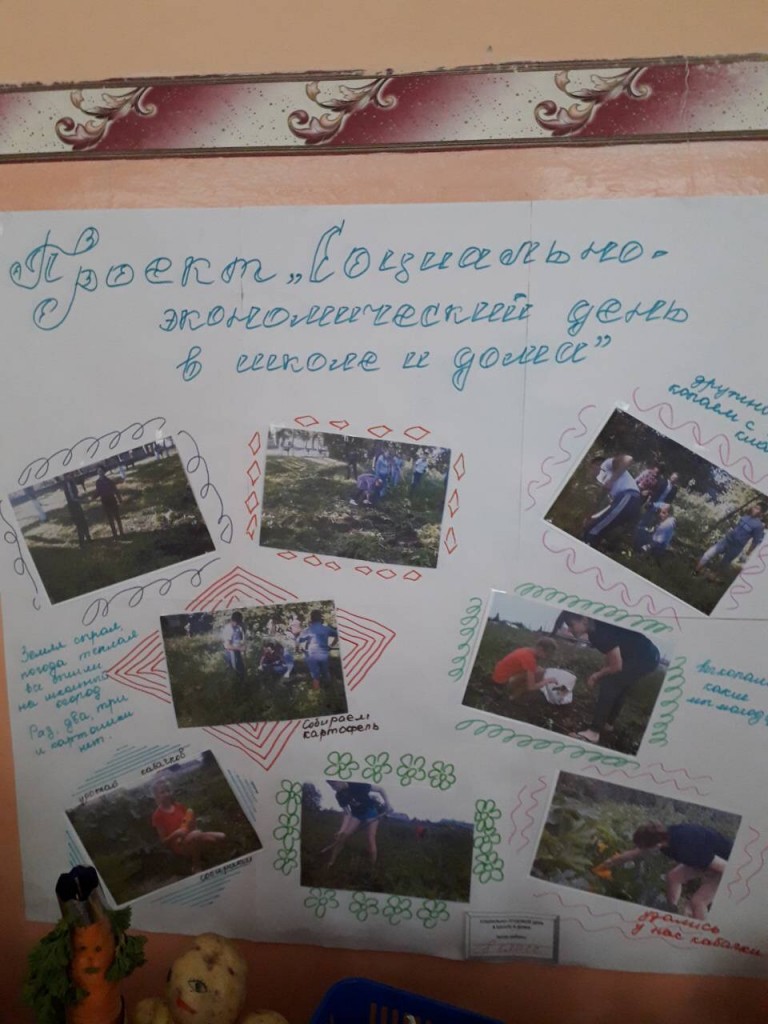 Проект „Социально-
экономический день
в школе и дома”
дружно
копаем с
Земля стала,
погода теплая
все вышли
на школьный
огород
Раз, два, три
и картошки
нет.
Собираем
картофель
какие
мы молодц
урожай кабачков
собираем
удались
у нас кабачки